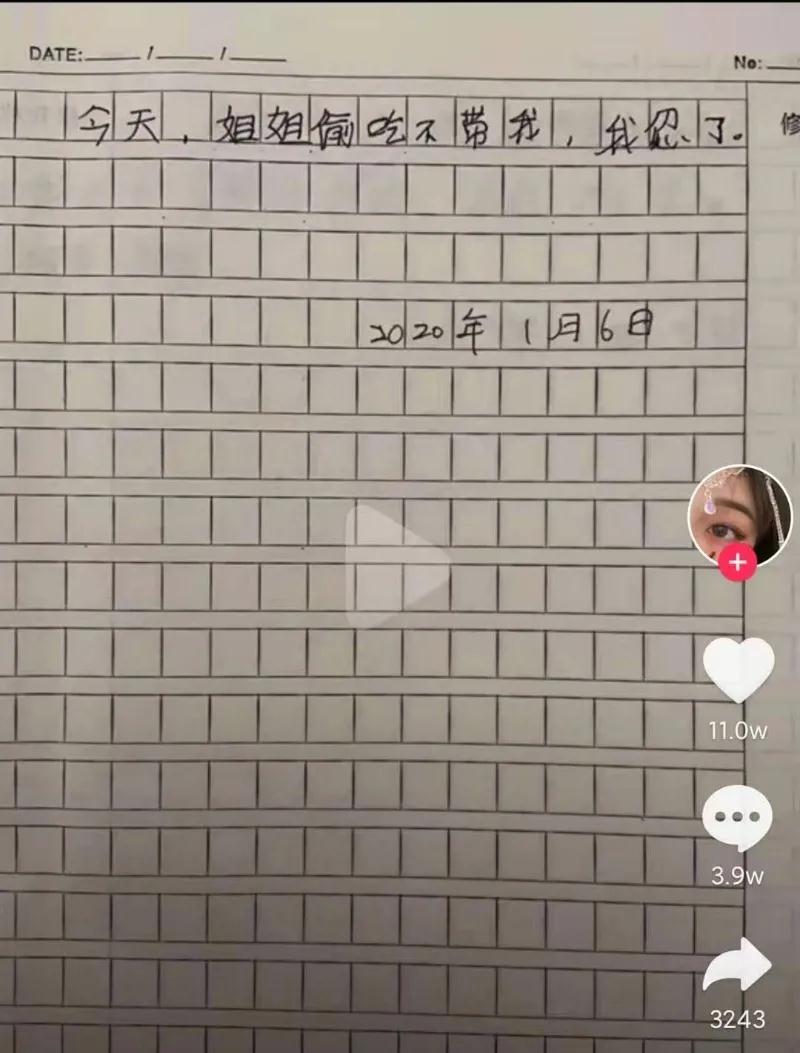 DATE: / /
No:
今天，姐姐偷吃不带我，我忍了。
修
2020年1月6日
11.0w
3.9w
3243